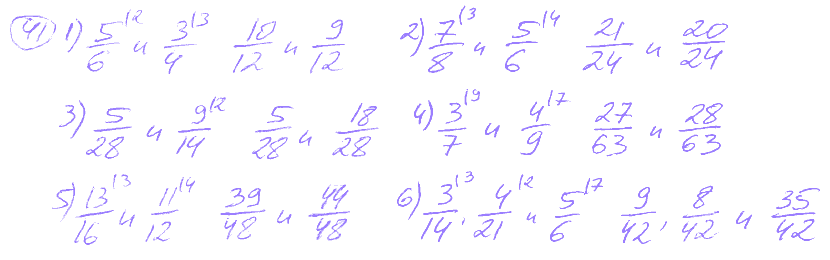 41 1) 5/6 |2 и 3/4 |3 10/12 и 9/12 2) 7/8 |3 и 5/6 |4 21/24 и 20/24
3) 5/28 и 9/14 |2 5/28 и 18/28 4) 3/7 |9 и 4/9 |7 27/63 и 28/63
5) 13/16 |3 и 11/12 |4 39/48 и 44/48 6) 3/14 |3, 4/21 |2 и 5/6 |7 9/42, 8/42 и 35/42